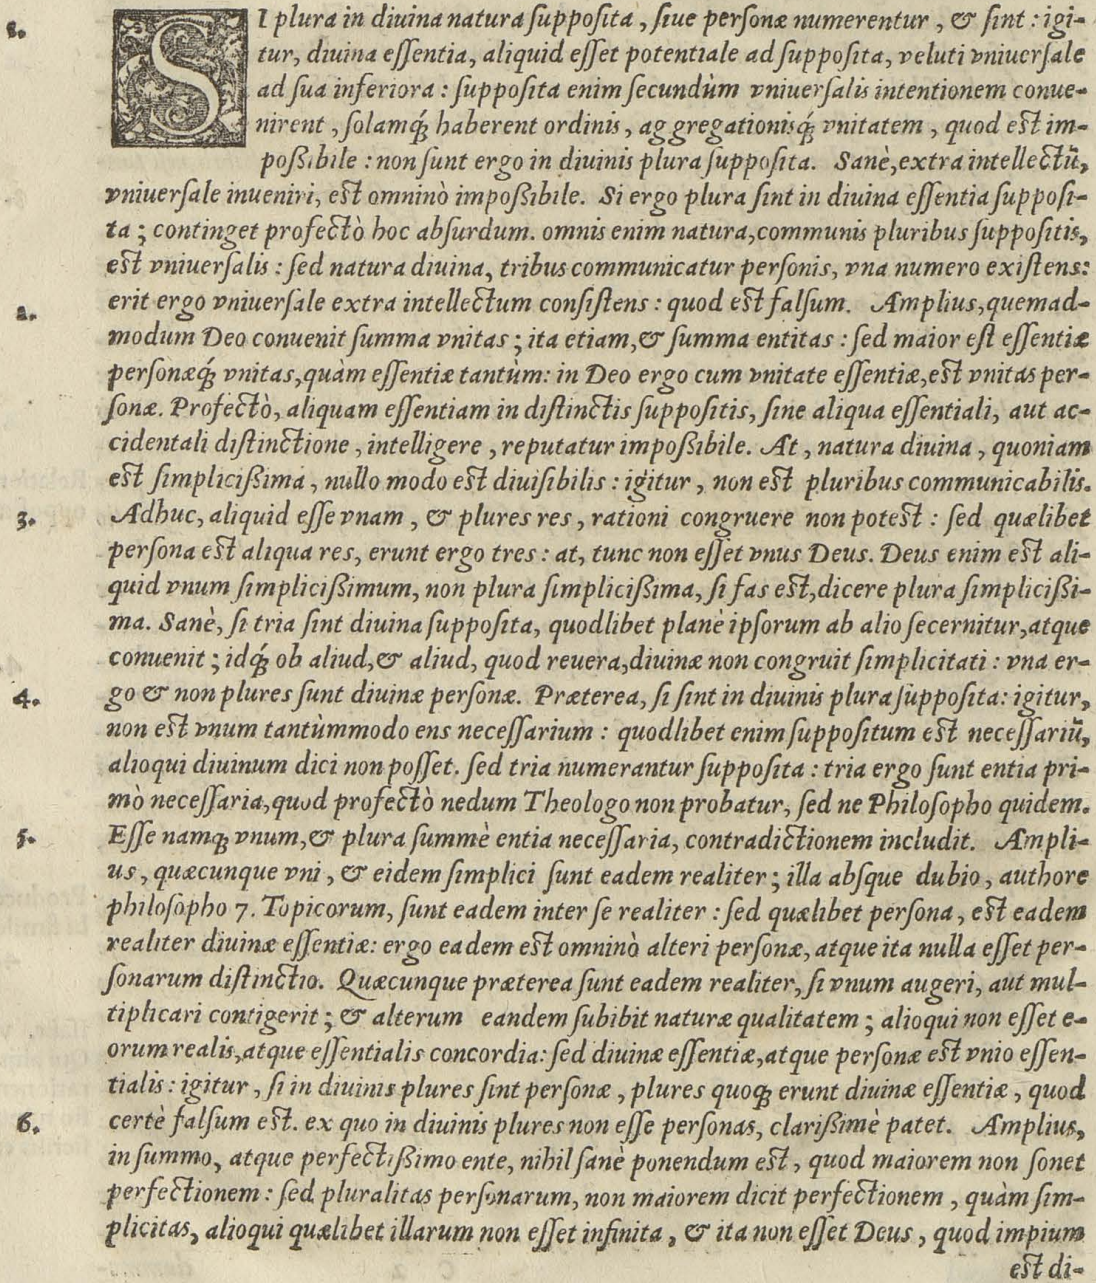 1. SI plura in diuina natura ſuppoſita, ſiue perſonæ numerentur, & ſint: igi-
tur, diuina eſſentia, aliquid eſſet potentiale ad ſuppoſita, veluti vniuerſale
ad ſua inferiora: ſuppoſita enim ſecundùm vniuerſalis intentionem conue-
nirent, ſolamq́; haberent ordinis, aggregationisq́; vnitatem, quod est im-
poßibile: non ſunt ergo in diuinis plura ſuppoſita. Sanè, extra intellectū,
vniuerſale inueniri, est omninò impoßibile. Si ergo plura ſint in diuina eſſentia ſuppoſi-
ta; continget profectò hoc abſurdum. omnis enim natura, communis pluribus ſuppoſitis,
est vniuerſalis: ſed natura diuina, tribus communicatur perſonis, vna numero exiſtens:
2. erit ergo vniuerſale extra intellectum conſiſtens: quod est falſum. Amplius, quemad-
modum Deo conuenit ſumma vnitas; ita etiam, & ſumma entitas: ſed maior eſt eſſentiæ
perſonæq́; vnitas, quàm eſſentiæ tantùm: in Deo ergo cum vnitate eſſentiæ, est vnitas per-
ſonæ. Profectò, aliquam eſſentiam in diſtinctis ſuppoſitis, ſine aliqua eſſentiali, aut ac-
cidentali diſtinctione, intelligere, reputatur impoßibile. At, natura diuina, quoniam
est ſimplicißima, nullo modo est diuiſibilis: igitur, non est pluribus communicabilis.
3. Adhuc, aliquid eſſe vnam, & plures res, rationi congruere non potest: ſed quælibet
perſona est aliqua res, erunt ergo tres: at, tunc non eſſet vnus Deus. Deus enim est ali-
quid vnum ſimplicißimum, non plura ſimplicißima, ſi fas est, dicere plura ſimplicißi-
ma. Sanè, ſi tria ſint diuina ſuppoſita, quodlibet planè ipſorum ab alio ſecernitur, atque
conuenit; idq́; ob aliud, & aliud, quod reuera, diuinæ non congruit ſimplicitati: vna er-
4. go & non plures ſunt diuinæ perſonæ. Præterea, ſi ſint in diuinis plura ſuppoſita: igitur,
non est vnum tantùmmodo ens neceſſarium: quodlibet enim ſuppoſitum est neceſſariū,
alioqui diuinum dici non poſſet. ſed tria numerantur ſuppoſita: tria ergo ſunt entia pri-
mò neceſſaria, quod profectò nedum Theologo non probatur, ſed ne Philoſopho quidem.
5. Eſſe namq; vnum, & plura ſummè entia neceſſaria, contradictionem includit. Ampli-
us, quæcunque vni, & eidem ſimplici ſunt eadem realiter; illa abſque dubio, authore
philoſopho 7. Topicorum, ſunt eadem inter ſe realiter: ſed quælibet perſona, est eadem
realiter diuinæ eſſentiæ: ergo eadem est omninò alteri perſonæ, atque ita nulla eſſet per-
ſonarum diſtinctio. Quæcunque præterea ſunt eadem realiter, ſi vnum augeri, aut mul-
tiplicari contigerit; & alterum eandem ſubibit naturæ qualitatem; alioqui non eſſet e-
orum realis, atque eſſentialis concordia: ſed diuinæ eſſentiæ, atque perſonæ est vnio eſſen-
tialis: igitur, ſi in diuinis plures ſint perſonæ, plures quoq; erunt diuinæ eſſentiæ, quod
6. certè falſum est. ex quo in diuinis plures non eſſe perſonas, clarißimè patet. Amplius,
in ſummo, atque perfectißimo ente, nihil ſanè ponendum est, quod maiorem non ſonet
perfectionem: ſed pluralitas perſonarum, non maiorem dicit perfectionem, quàm ſim-
plicitas, alioqui quælibet illarum non eſſet infinita, & ita non eſſet Deus, quod impium
est di-